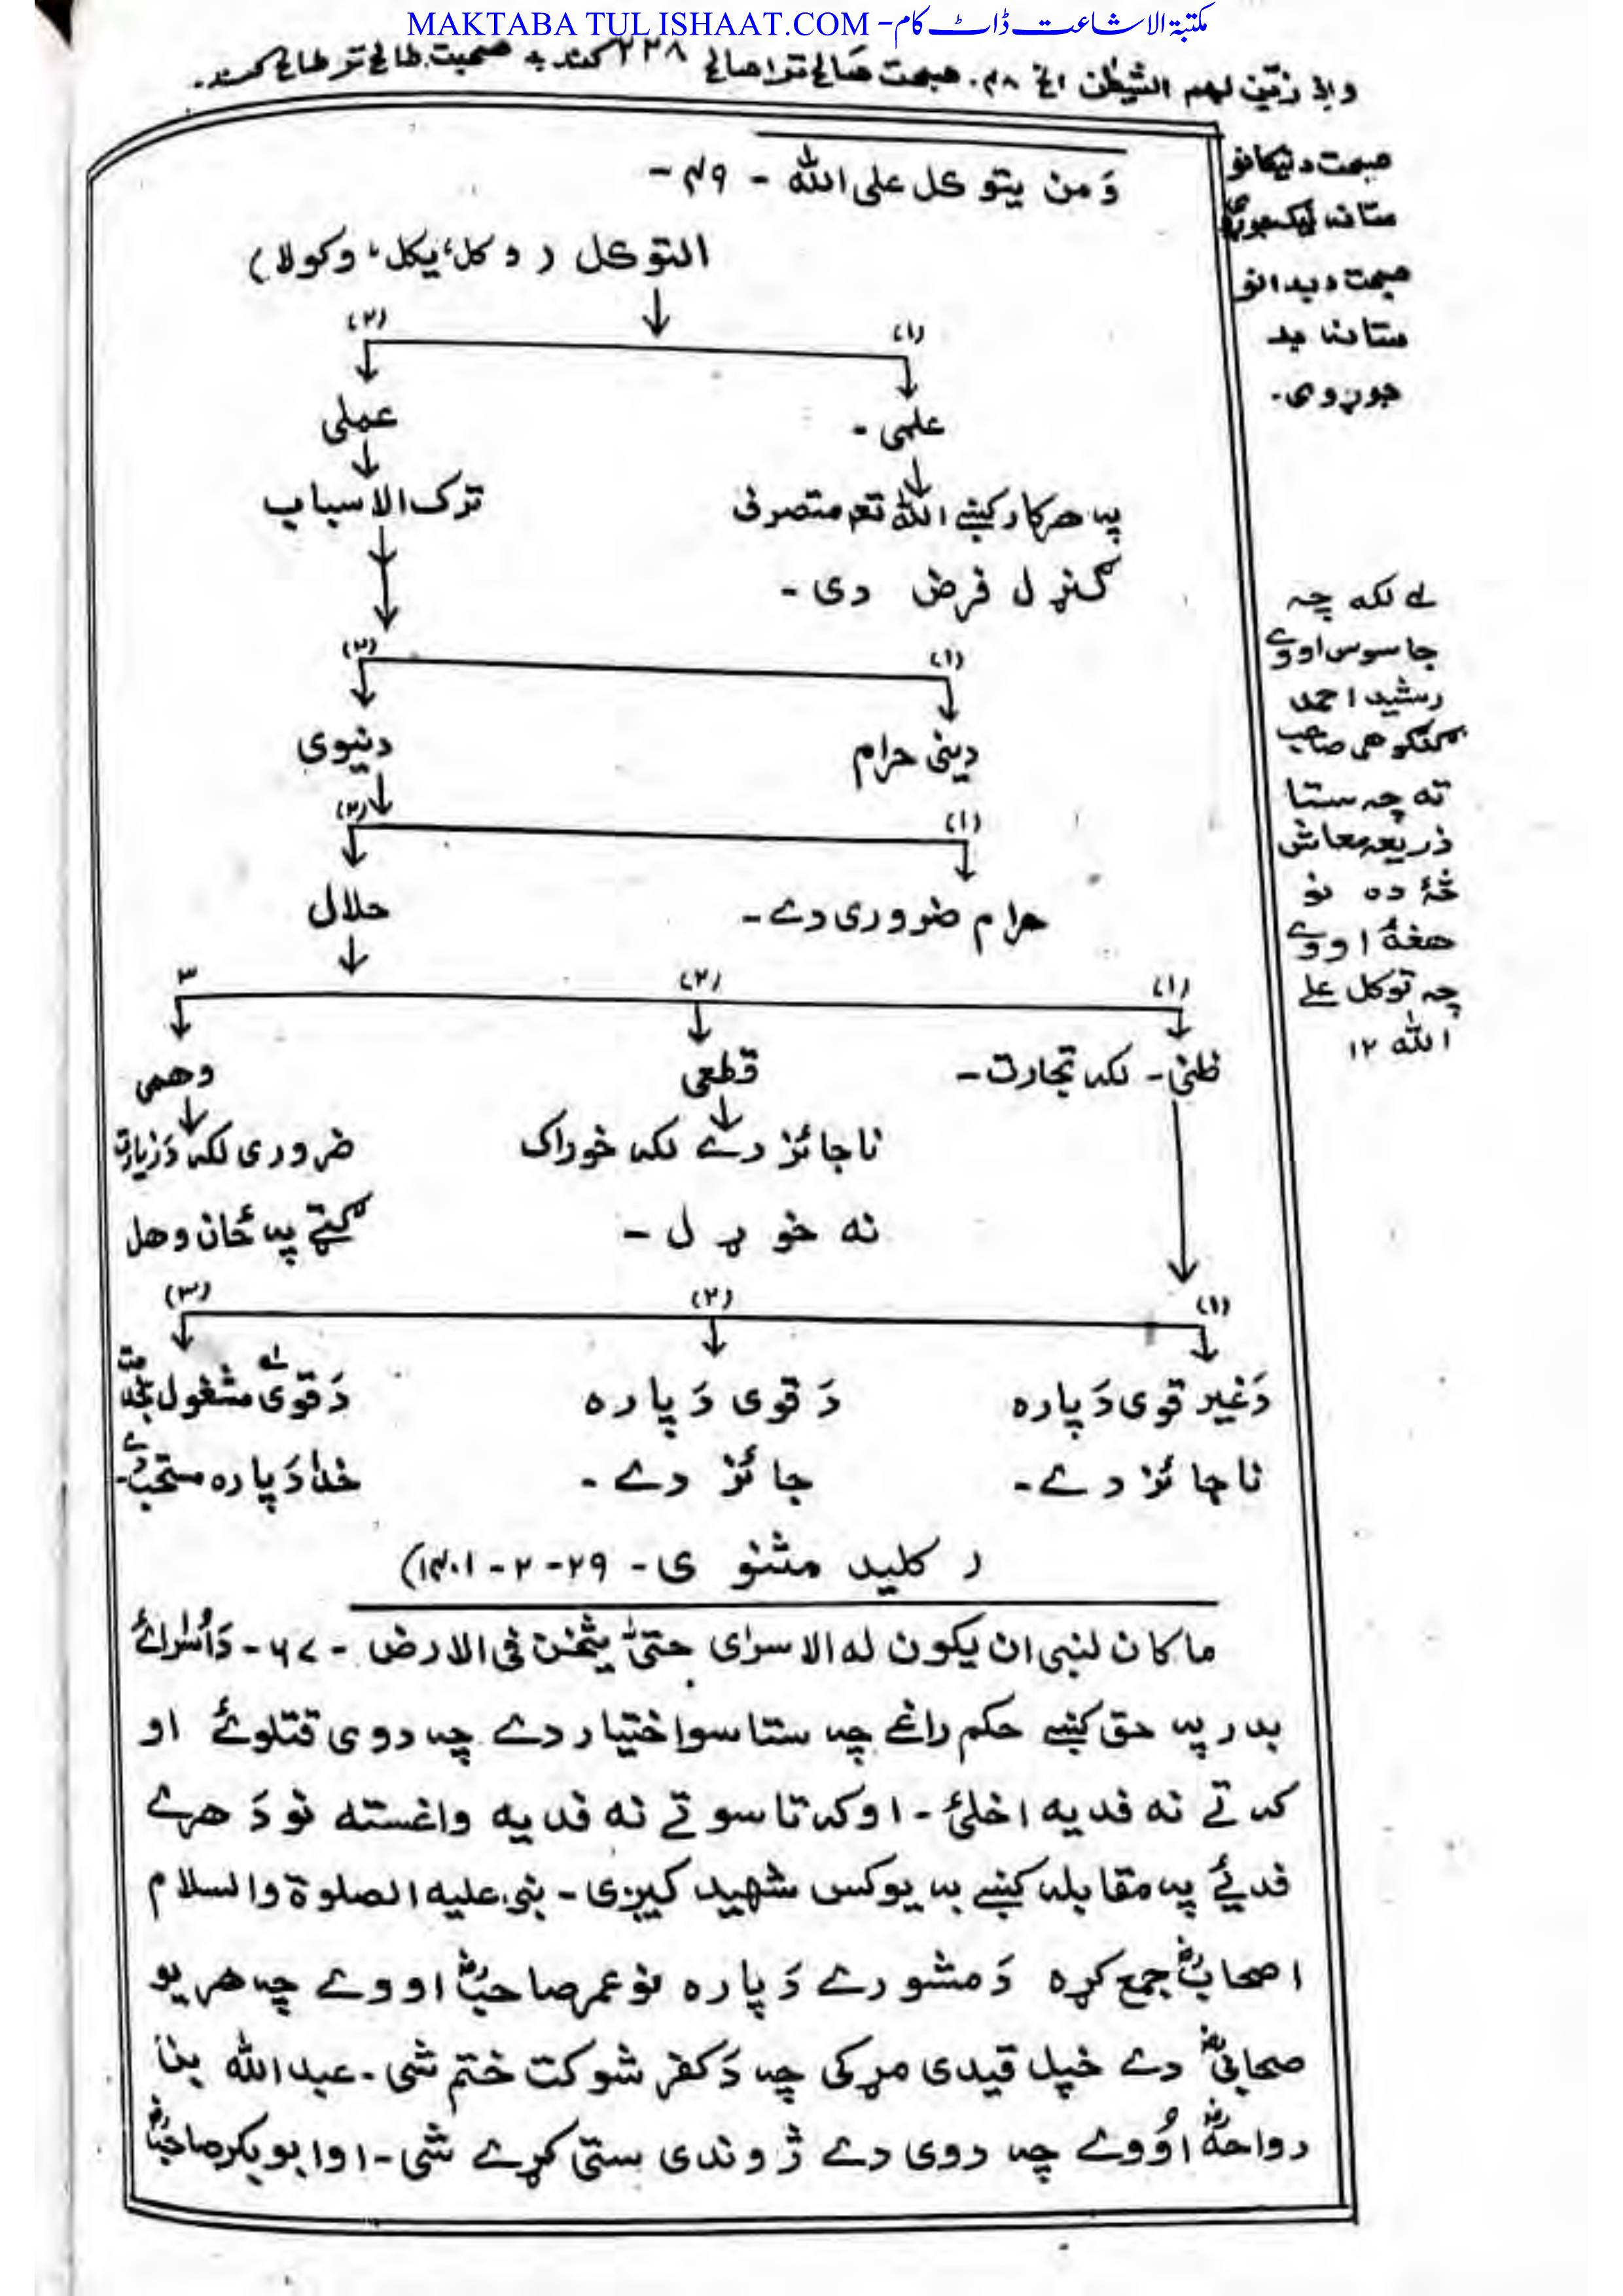 MAKTABA TUL ISHAAT.COM - مکتبة الاشاعت ڈاٹ کام
واذ زیّن لهم الشیطٰن الخ ۴۸. صحبت صَالح ترا صالح ۲۳۸ کند به صحبت طالح تر طالح کند.
صحبت د نیکانو
ستا نه نیک جوړوی
صحبت د بدانو
ستا نه بد
جوړوی.
وَمن یتوکل علی الله - ۴۹ -
التوکل ( وکل، یکل، وکولا )
(۱) (۲)
علمی - عملی
په هر کار کښے الله تعہ متصرف ترک الاسباب
ګنړل فرض دی -
(۱) (۲)
دینی حرام دنیوی
(۱) (۲)
حرام ضروری دے - حلال
(۱) (۲) ۳
ظنی - لکه تجارت - قطعی وهمی
ناجائز دے لکه خوراک ضروری لکه دَ زیارت
نه خوړل - ګټے په ځان وهل
(۱) (۲) (۳)
دَ غیر قوی دَ پاره دَ قوی دَ پاره دَ قوی لے مشغول
ناجائز دے - جائز دے - دَ پاره مستحب
( کلید مثنوی - ۲۹ - ۲ - ۱۴۰۱ )
لے لکه چه
جاسوس اووے
رشید احمد
ګنګوهی صاحب
ته چه ستا
ذریعه معاش
څهٔ ده نو
هغهٔ اووے
چه توکل علے
الله ۱۲
ما کان لنبی ان یکون له الاسرٰی حتیٰ یثخن فی الارض - ۶۷ - دَ اُسرائے
بدر په حق کښے حکم راغے چه ستاسو اختیار دے چه دوی قتلوئے او
که ترے نه فدیه اخلئ - او که تاسو ترے نه فدیه واغسته نو دَ هرے
فدیے په مقابله کښے به یو کس شهید کیږی - نبی علیه الصلوة والسلام
اصحابؓ جمع کړه دَ مشورے دَ پاره نو عمر صاحبؓ اووے چه هر یو
صحابیؓ دے خپل قیدی مړ کی چه دَ کفر شوکت ختم شی - عبدالله بن
رواحهؓ اوُوے چه دوی دے ژوندی ستی کړے شی - او ابوبکر صاحبؓ